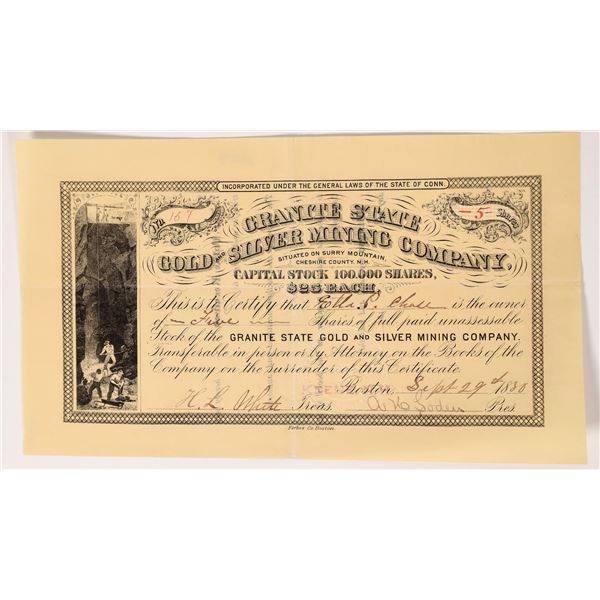 INCORPORATED UNDER THE GENERAL LAWS OF THE STATE OF CONN.
No. 157 -5- Shares
GRANITE STATE
GOLD AND SILVER MINING COMPANY,
SITUATED ON SURRY MOUNTAIN,
CHESHIRE COUNTY, N.H.
CAPITAL STOCK 100.000 SHARES,
$25 EACH,
This is to Certify that Ella P. Chase is the owner
of Five Shares of full paid unassessable
Stock of the GRANITE STATE GOLD AND SILVER MINING COMPANY.
Transferable in person or by Attorney on the Books of the
Company on the Surrender of this Certificate.
Boston, Sept 29th 1880
H. L. White Treas. Pres.
Forbes Co. Boston.